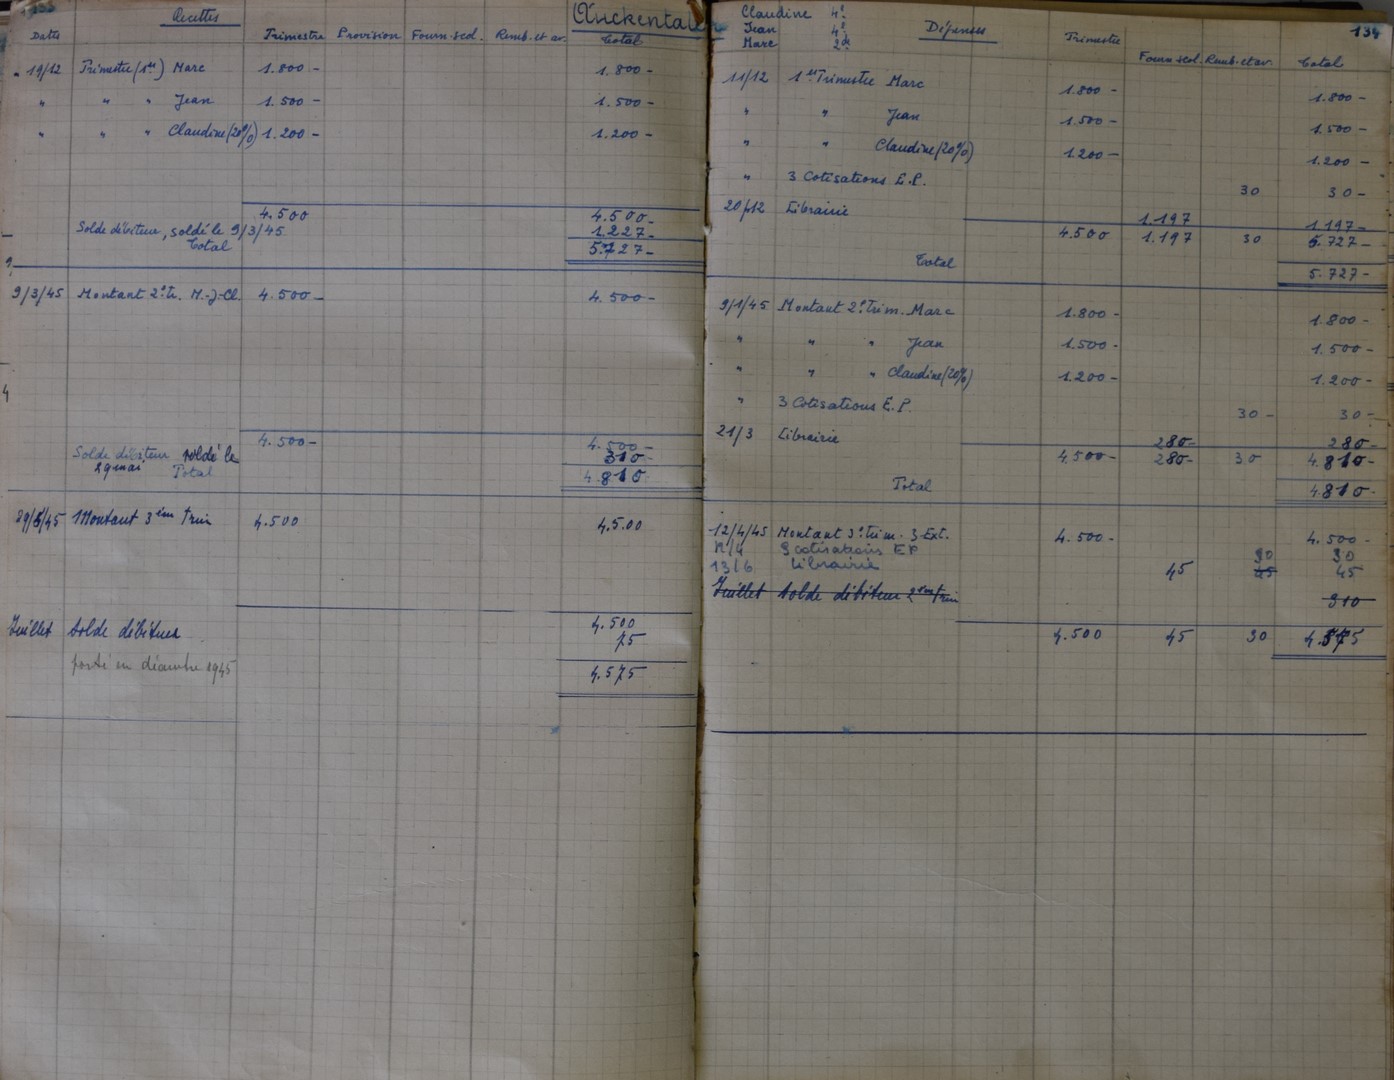 Recettes
Dates Trimestre Provision Fourn. scol. Remb. et av. Total
19/12 Trimestre (1er) Marc 1.800 - 1.800 -
" " " Jean 1.500 - 1.500 -
" " " Claudine (20%) 1.200 - 1.200 -
4.500 4.500 -
Solde débiteur, soldé le 9/3/45 1.227 -
Total 5.727 -
9/3/45 Montant 2e tr. M.-J.-Cl. 4.500 - 4.500 -
4.500 - 4.500 -
Solde débiteur soldé le 310 -
29 mai Total 4.810 -
29/5/45 Montant 3em trim 4.500 4.500
4.500
Juillet Solde débiteur 75
porté en décembre 1945 4.575
Claudine 4e
Jean 4e
Marc 2de
Dépenses
134
Trimestre Fourn. scol. Remb. et av. Total
11/12 1er Trimestre Marc 1.800 - 1.800 -
" " Jean 1.500 - 1.500 -
" " Claudine (20%) 1.200 - 1.200 -
" 3 Cotisations E.P. 30 30 -
20/12 Librairie 1.197 1.197 -
4.500 1.197 30 5.727 -
Total 5.727 -
9/1/45 Montant 2e Trim. Marc 1.800 - 1.800 -
" " " Jean 1.500 - 1.500 -
" " " Claudine (20%) 1.200 - 1.200 -
" 3 Cotisations E.P. 30 - 30 -
21/3 Librairie 280 - 280 -
4.500 - 280 - 30 4.810 -
Total 4.810 -
12/4/45 Montant 3e trim. 3 Ext. 4.500 - 4.500 -
12/4 3 cotisations EP 30 30
13/6 Librairie 45 45 45
Juillet Solde débiteur 2em trim 310
4.500 45 30 4.575